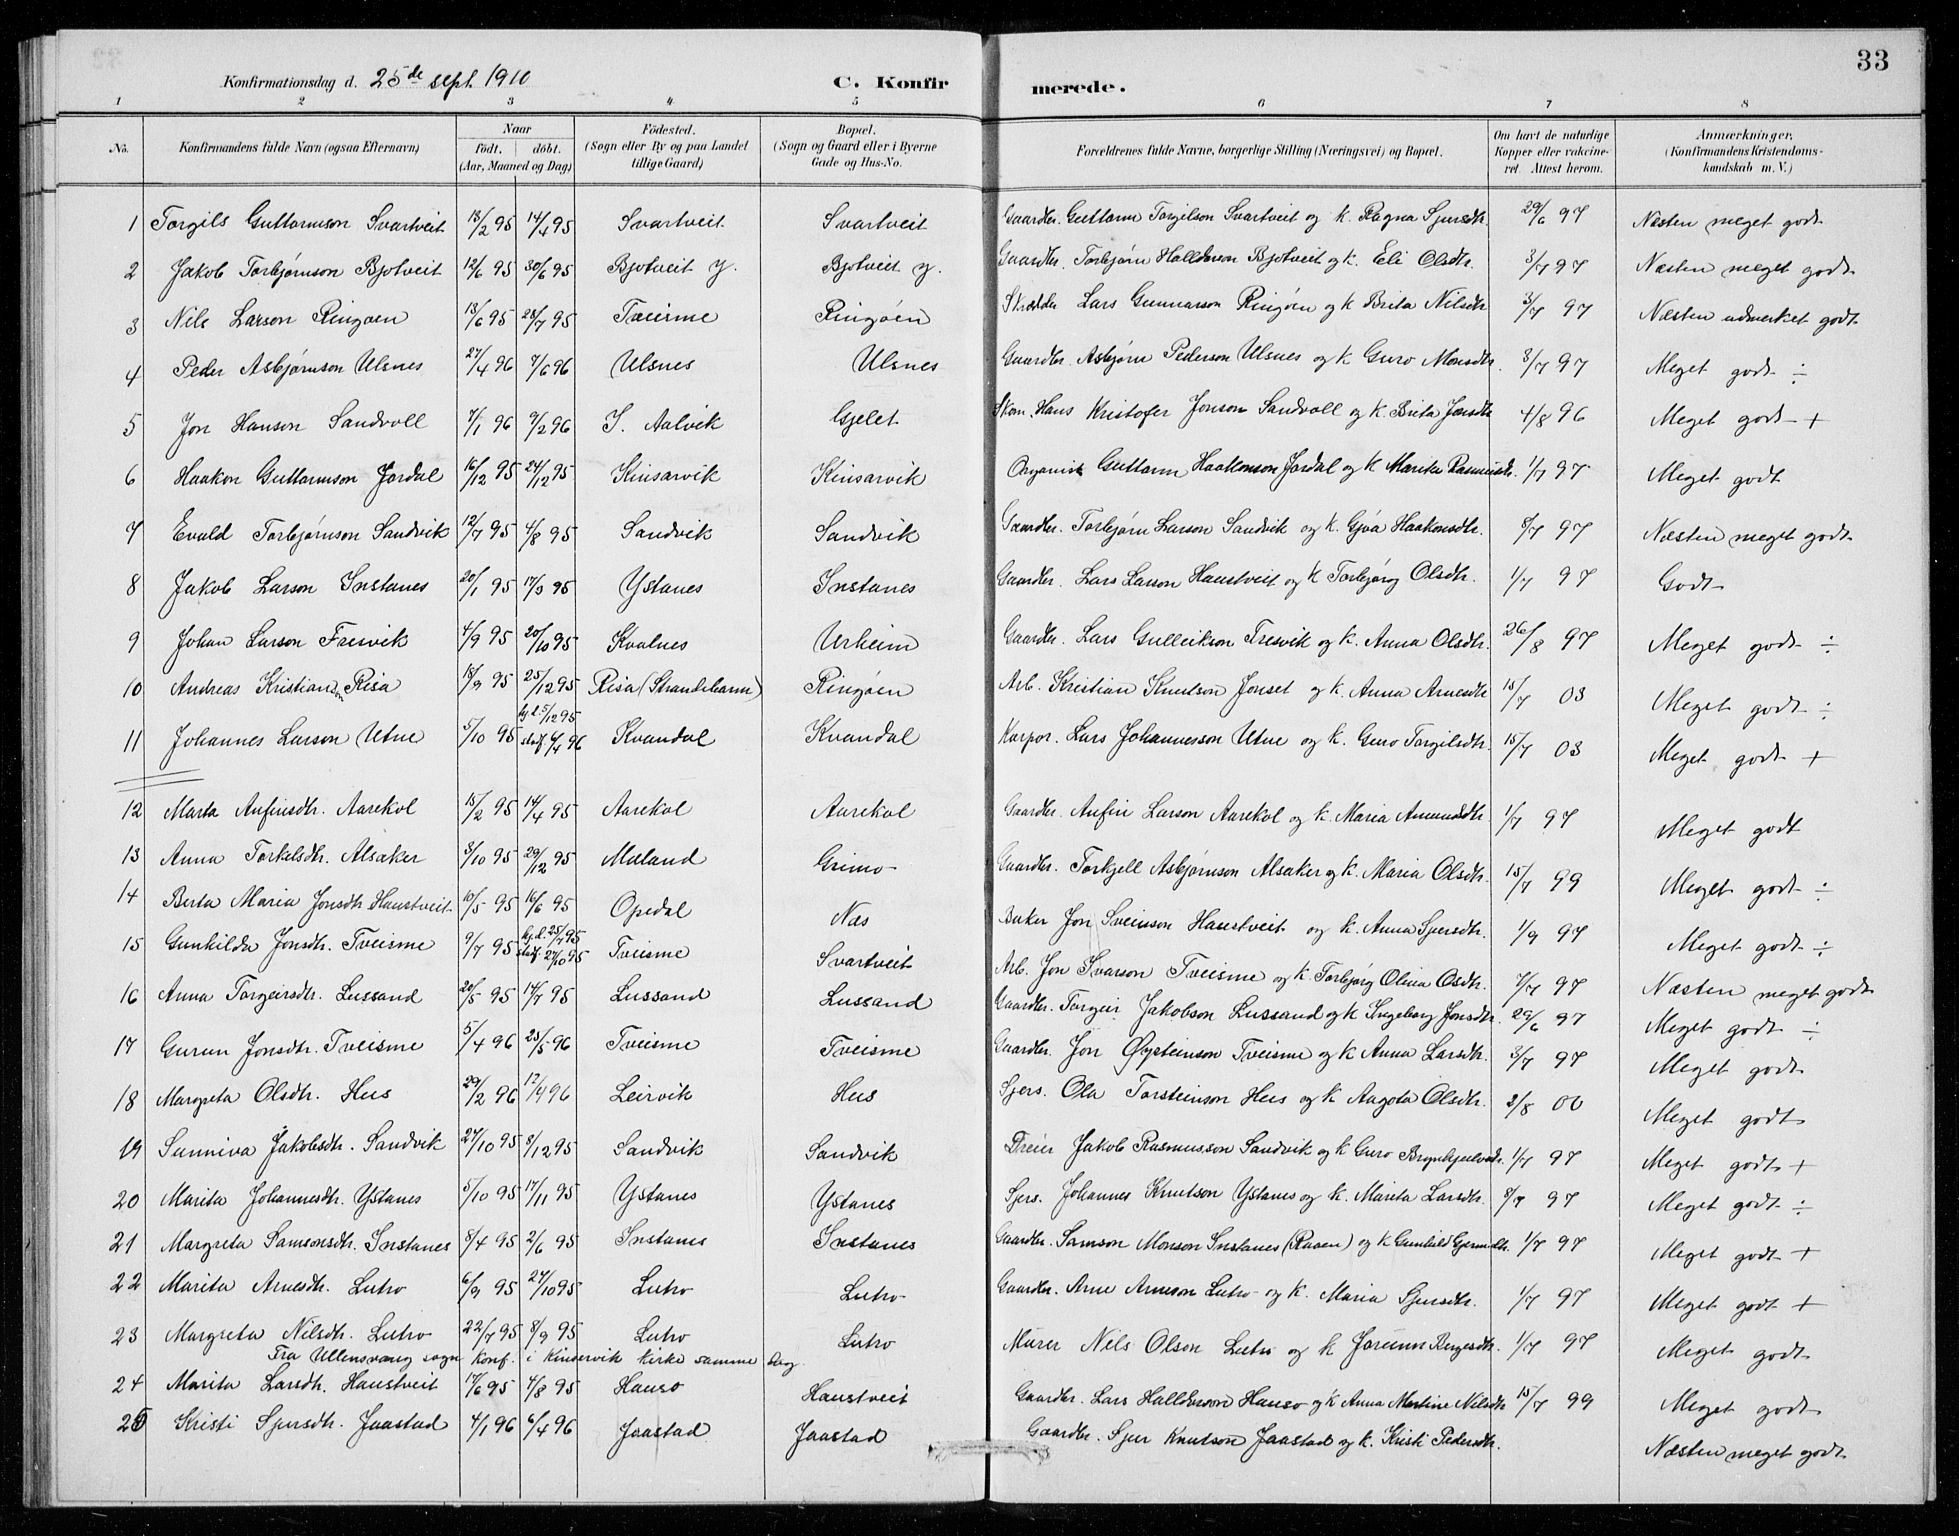 33
Konfirmationsdag d. 25de sept 1910 C. Konfirmerede.
1 2 3 4 5 6 7 8
No. Konfirmandens fulde Navn (ogsaa Efternavn) Naar födt. döbt. (Aar, Maaned og Dag) Födested. (Sogn eller By og paa Landet tillige Gaard) Bopæl. (Sogn og Gaard eller i Byerne Gade og Hus-No. Forældrenes fulde Navne, borgerlige Stilling (Næringsvei) og Bopæl. Om havt de naturlige Kopper eller vakcineret. Attest herom. Anmærkninger. (Konfirmandens Kristendomskundskab m. V.)
1 Torgils Guttormson Svartveit 18/2 95 14/4 95 Svartveit Svartveit Gaardbr. Guttorm Torgilson Svartveit og k. Ragna Sjursdtr. 29/6 97 Næsten meget godt
2 Jakob Torbjørnson Bjotveit 12/6 95 30/6 95 Bjotveit y. Bjotveit y. Gaardbr. Torbjørn Halldorson Bjotveit og k. Eli Olsdtr. 3/7 97 Næsten meget godt
3 Nils Larson Ringøen 13/6 95 28/7 95 Tveisme Ringøen Skrædder Lars Gunnarson Ringøen og k Brita Nilsdtr 3/7 97 Næsten udmerket godt
4 Peder Asbjørnson Ulsnes 27/4 96 7/6 96 Ulsnes Ulsnes Gaardbr. Asbjørn Pederson Ulsnes og k Guro Monsdtr. 3/7 97 Meget godt ÷
5 Jon Hanson Sandvoll 7/1 96 9/2 96 I. Aalvik Gjelet Skom. Hans Kristofer Jonson Sandvoll og k Brita Jonsdtr 4/8 96 Meget godt +
6 Haakon Guttormson Jordal 16/12 95 24/12 95 Kinsarvik Kinsarvik Organist Guttorm Haakonson Jordal og k Marita Rasmusdtr. 1/7 97 Meget godt
7 Evald Torbjørnson Sandvik 12/7 95 4/8 95 Sandvik Sandvik Gaardbr. Torbjørn Larson Sandvik og k. Gjøa Haakonsdtr. 8/7 97 Næsten meget godt
8 Jakob Larson Instanes 20/1 95 17/3 95 Ystanes Instanes Gaardbr. Lars Larson Haustveit og k Torbjørg Olsdtr. 1/7 97 Godt
9 Johan Larson Fresvik 4/9 95 20/10 95 Kvalnes Urheim Gaardbr. Lars Gulleikson Fresvik og k. Anna Olsdtr. 26/8 97 Meget godt ÷
10 Andreas Kristianson Risa 18/9 95 25/12 95 Risa (Strandebarm) Ringøen Arb. Kristian Knutson Jonset og k. Anna Arnesdtr 15/7 03 Meget godt ÷
11 Johannes Larson Utne 5/10 95 hj.d. 5/12 95 stadf. 6/4 96 Kvandal Kvandal Karpor. Lars Johannesson Utne og k. Guro Torgilsdtr. 15/7 03 Meget godt +
12 Marta Anfinsdtr. Aarekol 15/2 95 14/4 95 Aarekol Aarekol Gaardbr. Anfin Larson Aarekol og k. Maria Amundsdtr 1/7 97 Meget godt
13 Anna Torkelsdtr. Alsaker 3/10 95 29/12 95 Mæland Grimo Gaardbr. Torkjell Asbjørnson Alsaker og k. Maria Olsdtr. 15/7 99 Meget godt ÷
14 Berta Maria Jonsdtr Haustveit 10/5 95 16/6 95 Opedal Næs Baker Jon Sveinson Haustveit og k. Anna Sjursdtr. 1/9 97 Meget godt ÷
15 Gunhilda Jonsdtr. Tveisme 9/7 95 hj.d. 25/7 95 stadf. 27/10 95 Tveisme Svartveit Arb. Jon Ivarson Tveisme og k Torbjørg Olina Osdtr. 7/7 97 Næsten meget godt
16 Anna Torgeirsdtr. Lussand 20/5 95 14/7 95 Lussand Lussand Gaardbr. Torgeir Jakobson Lussand og k Ingeborg Jonsdtr. 29/6 97 Meget godt ÷
17 Gurun Jonsdtr. Tveisme 5/4 96 25/5 96 Tveisme Tveisme Gaardbr. Jon Øysteinson Tveisme og k Anna Larsdtr. 3/7 97 Meget godt
18 Margreta Olsdtr. Hus 29/2 96 12/4 96 Leirvik Hus Sjers. Ola Torsteinson Hus og k Aagota Olsdtr. 2/8 00 Meget godt
19 Sunniva Jakobsdtr. Sandvik 27/10 95 8/12 95 Sandvik Sandvik Dreier Jakob Rasmusson Sandvik og k Guro Brynhjulvsdtr. 1/7 97 Meget godt +
20 Marita Johannesdtr. Ystanes 5/10 95 17/11 95 Ystanes Ystanes Sjers. Johannes Knutson Ystanes og k. Marita Larsdtr. 8/7 97 Meget godt ÷
21 Margreta Samsonsdtr. Instanes 8/4 95 2/6 95 Instanes Instanes Gaardbr. Samson Monson Instanes (Raaen) og k Gunhild Gjermdtr. 1/7 97 Meget godt +
22 Marita Arnesdtr. Lutro 6/9 95 27/10 95 Lutro Lutro Gaardbr. Arne Arneson Lutro og k. Maria Sjursdtr. 1/7 97 Meget godt +
23 Margreta Nilsdtr. Lutro 22/7 95 8/9 95 Lutro Lutro Murer Nils Olson Lutro og k Jorunn Bergesdtr. 1/7 97 Meget godt
Fra Ullensvang sogn konf. i Kinservik kirke samme dag
24 Marita Larsdtr. Haustveit 17/6 95 4/8 95 Hauso Haustveit Gaardbr. Lars Halldorson Hauso og k Anna Martine Nilsdtr 15/7 99 Meget godt
25 Kristi Sjursdtr. Jaastad 4/1 96 6/4 96 Jaastad Jaastad Gaardbr. Sjur Knutson Jaastad og k. Kristi Pedersdtr. Næsten meget godt